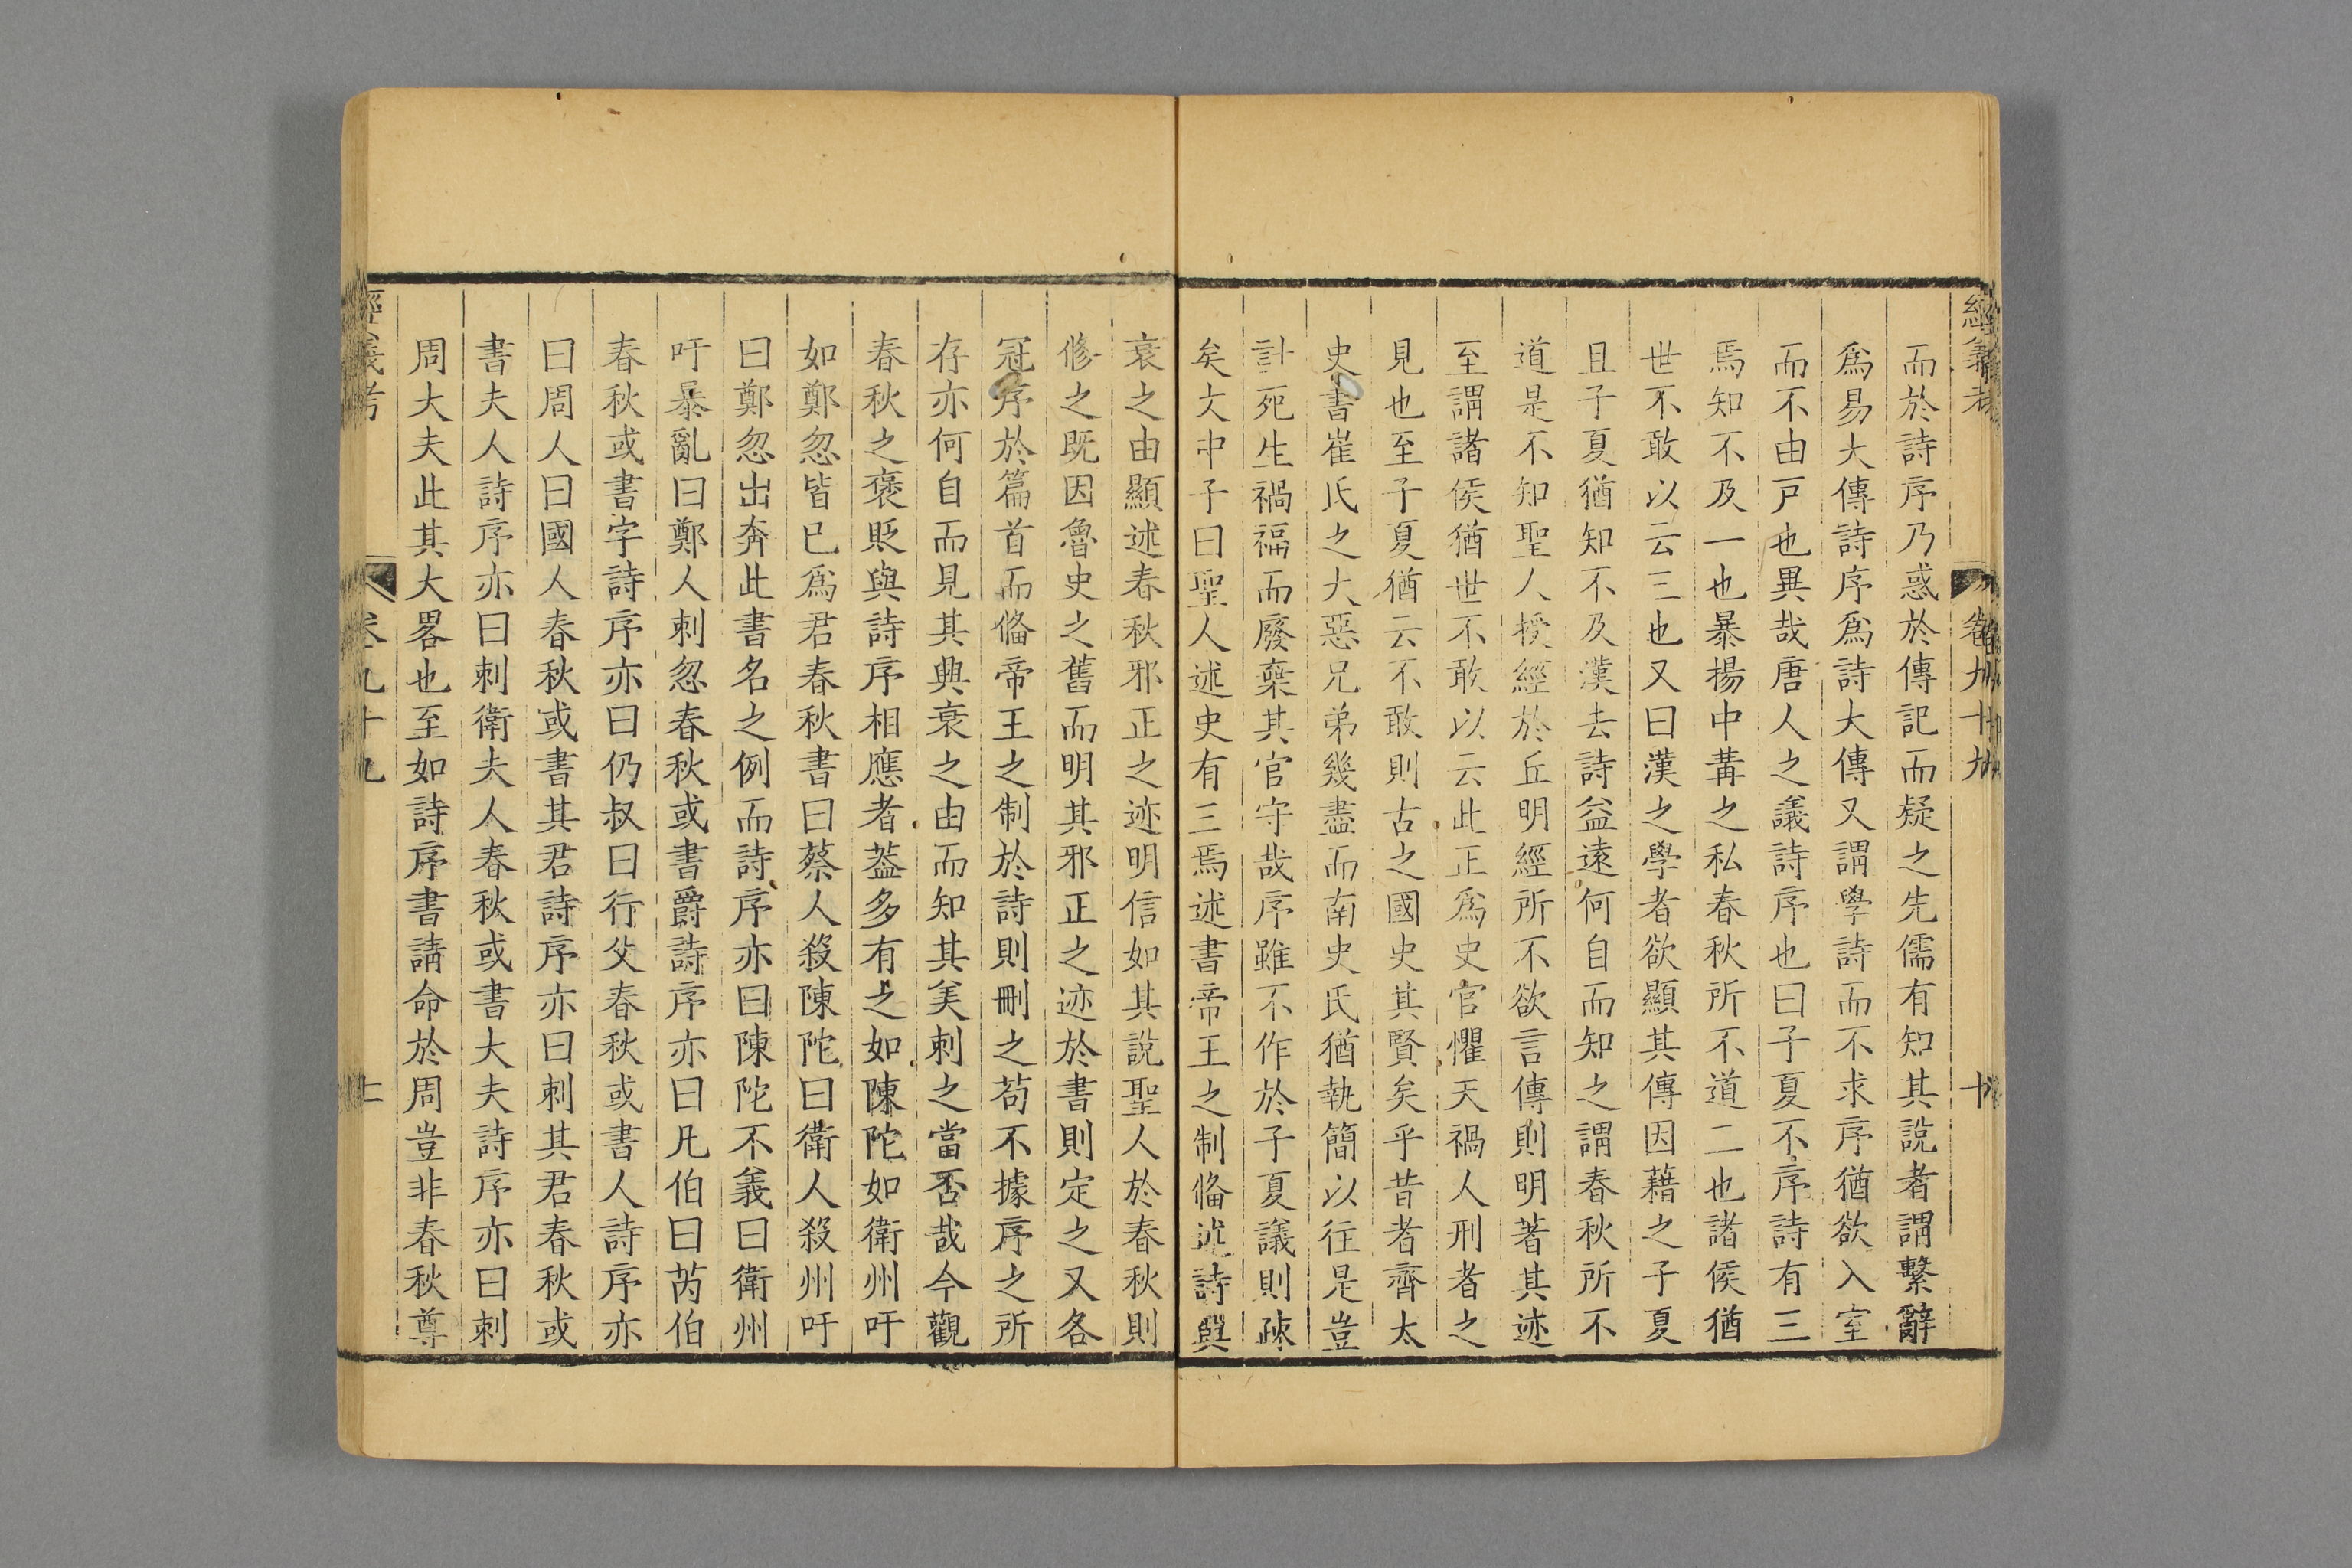 經義考　卷九十九　十
而於詩序乃惑於傳記而疑之先儒有知其說者謂繫辭
爲易大傳詩序爲詩大傳又謂學詩而不求序猶欲入室
而不由戸也異哉唐人之議詩序也曰子夏不序詩有三
焉知不及一也暴揚中冓之私春秋所不道二也諸侯猶
世不敢以云三也又曰漢之學者欲顯其傳因藉之子夏
且子夏猶知不及漢去詩益遠何自而知之謂春秋所不
道是不知聖人授經於丘明經所不欲言傳則明著其迹
至謂諸侯猶世不敢以云此正爲史官懼天禍人刑者之
見也至子夏猶云不敢則古之國史其賢矣乎昔者齊太
史書崔氏之大惡兄弟幾盡而南史氏猶執簡以往是豈
計死生禍福而廢棄其官守哉序雖不作於子夏議則疎
矣文中子曰聖人述史有三焉述書帝王之制備述詩興
衰之由顯述春秋邪正之迹明信如其說聖人於春秋則
修之既因魯史之舊而明其邪正之迹於書則定之又各
冠序於篇首而備帝王之制於詩則刪之苟不據序之所
存亦何自而見其興衰之由而知其美刺之當否哉今觀
春秋之褒貶與詩序相應者葢多有之如陳陀如衛州吁
如鄭忽皆已爲君春秋書曰蔡人殺陳陀曰衛人殺州吁
曰鄭忽出奔此書名之例而詩序亦曰陳陀不義曰衛州
吁暴亂曰鄭人刺忽春秋或書爵詩序亦曰凡伯曰芮伯
春秋或書字詩序亦曰仍叔曰行父春秋或書人詩序亦
曰周人曰國人春秋或書其君詩序亦曰刺其君春秋或
書夫人詩序亦曰刺衛夫人春秋或書大夫詩序亦曰刺
周大夫此其大畧也至如詩序書請命於周豈非春秋尊
經義考　卷九十九　十